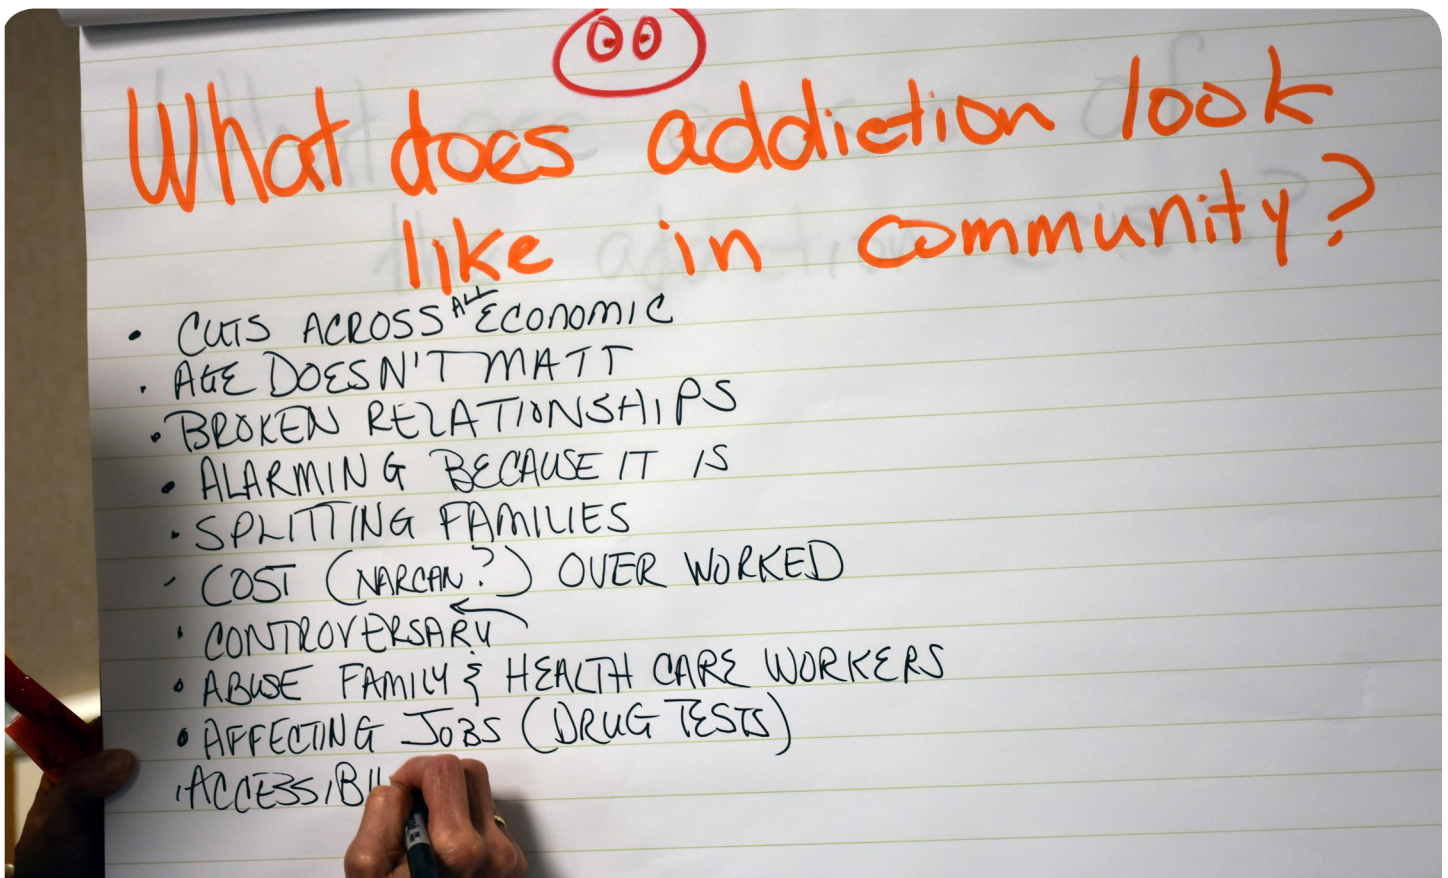 What does addiction look
like in community?
• CUTS ACROSS ALL ECONOMIC
• AGE DOESN'T MATT
• BROKEN RELATIONSHIPS
• ALARMING BECAUSE IT IS
• SPLITTING FAMILIES
• COST (NARCAN?) OVER WORKED
• CONTROVERSARY
• ABUSE FAMILY & HEALTH CARE WORKERS
• AFFECTING JOBS (DRUG TESTS)
• ACCESSIBIL